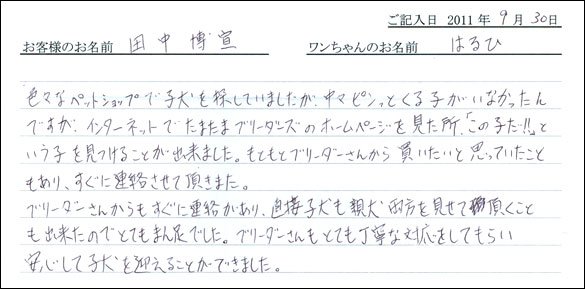 ご記入日 2011年 9月 30日
お客様のお名前 田中博宣 ワンちゃんのお名前 はるひ
色々なペットショップで子犬を探していましたが、中々ピンッとくる子がいなかったん
ですが、インターネットでたまたまブリーダーズのホームページを見た所、「この子だ!!」と
いう子を見つけることが出来ました。もともとブリーダーさんから買いたいと思っていたこと
もあり、すぐに連絡させて頂きました。
ブリーダーさんからもすぐに連絡があり、直接子犬も親犬両方を見せて頂くこと
も出来たのでとてもまん足でした。ブリーダーさんもとても丁寧な対応をしてもらい
安心して子犬を迎えることができました。